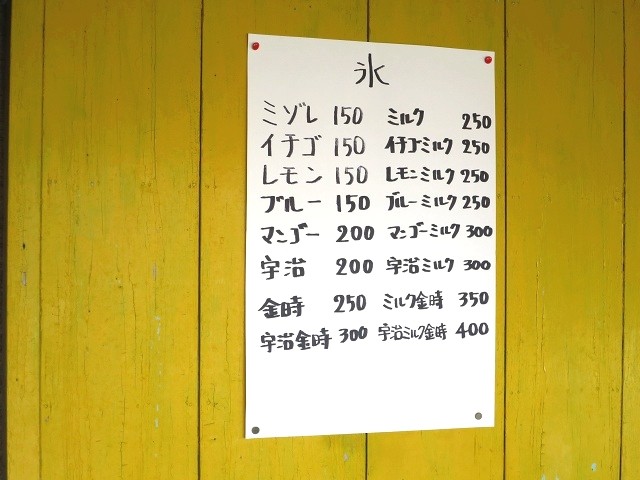 氷
ミゾレ 150 ミルク 250
イチゴ 150 イチゴミルク 250
レモン 150 レモンミルク 250
ブルー 150 ブルーミルク 250
マンゴー 200 マンゴーミルク 300
宇治 200 宇治ミルク 300
金時 250 ミルク金時 350
宇治金時 300 宇治ミルク金時 400